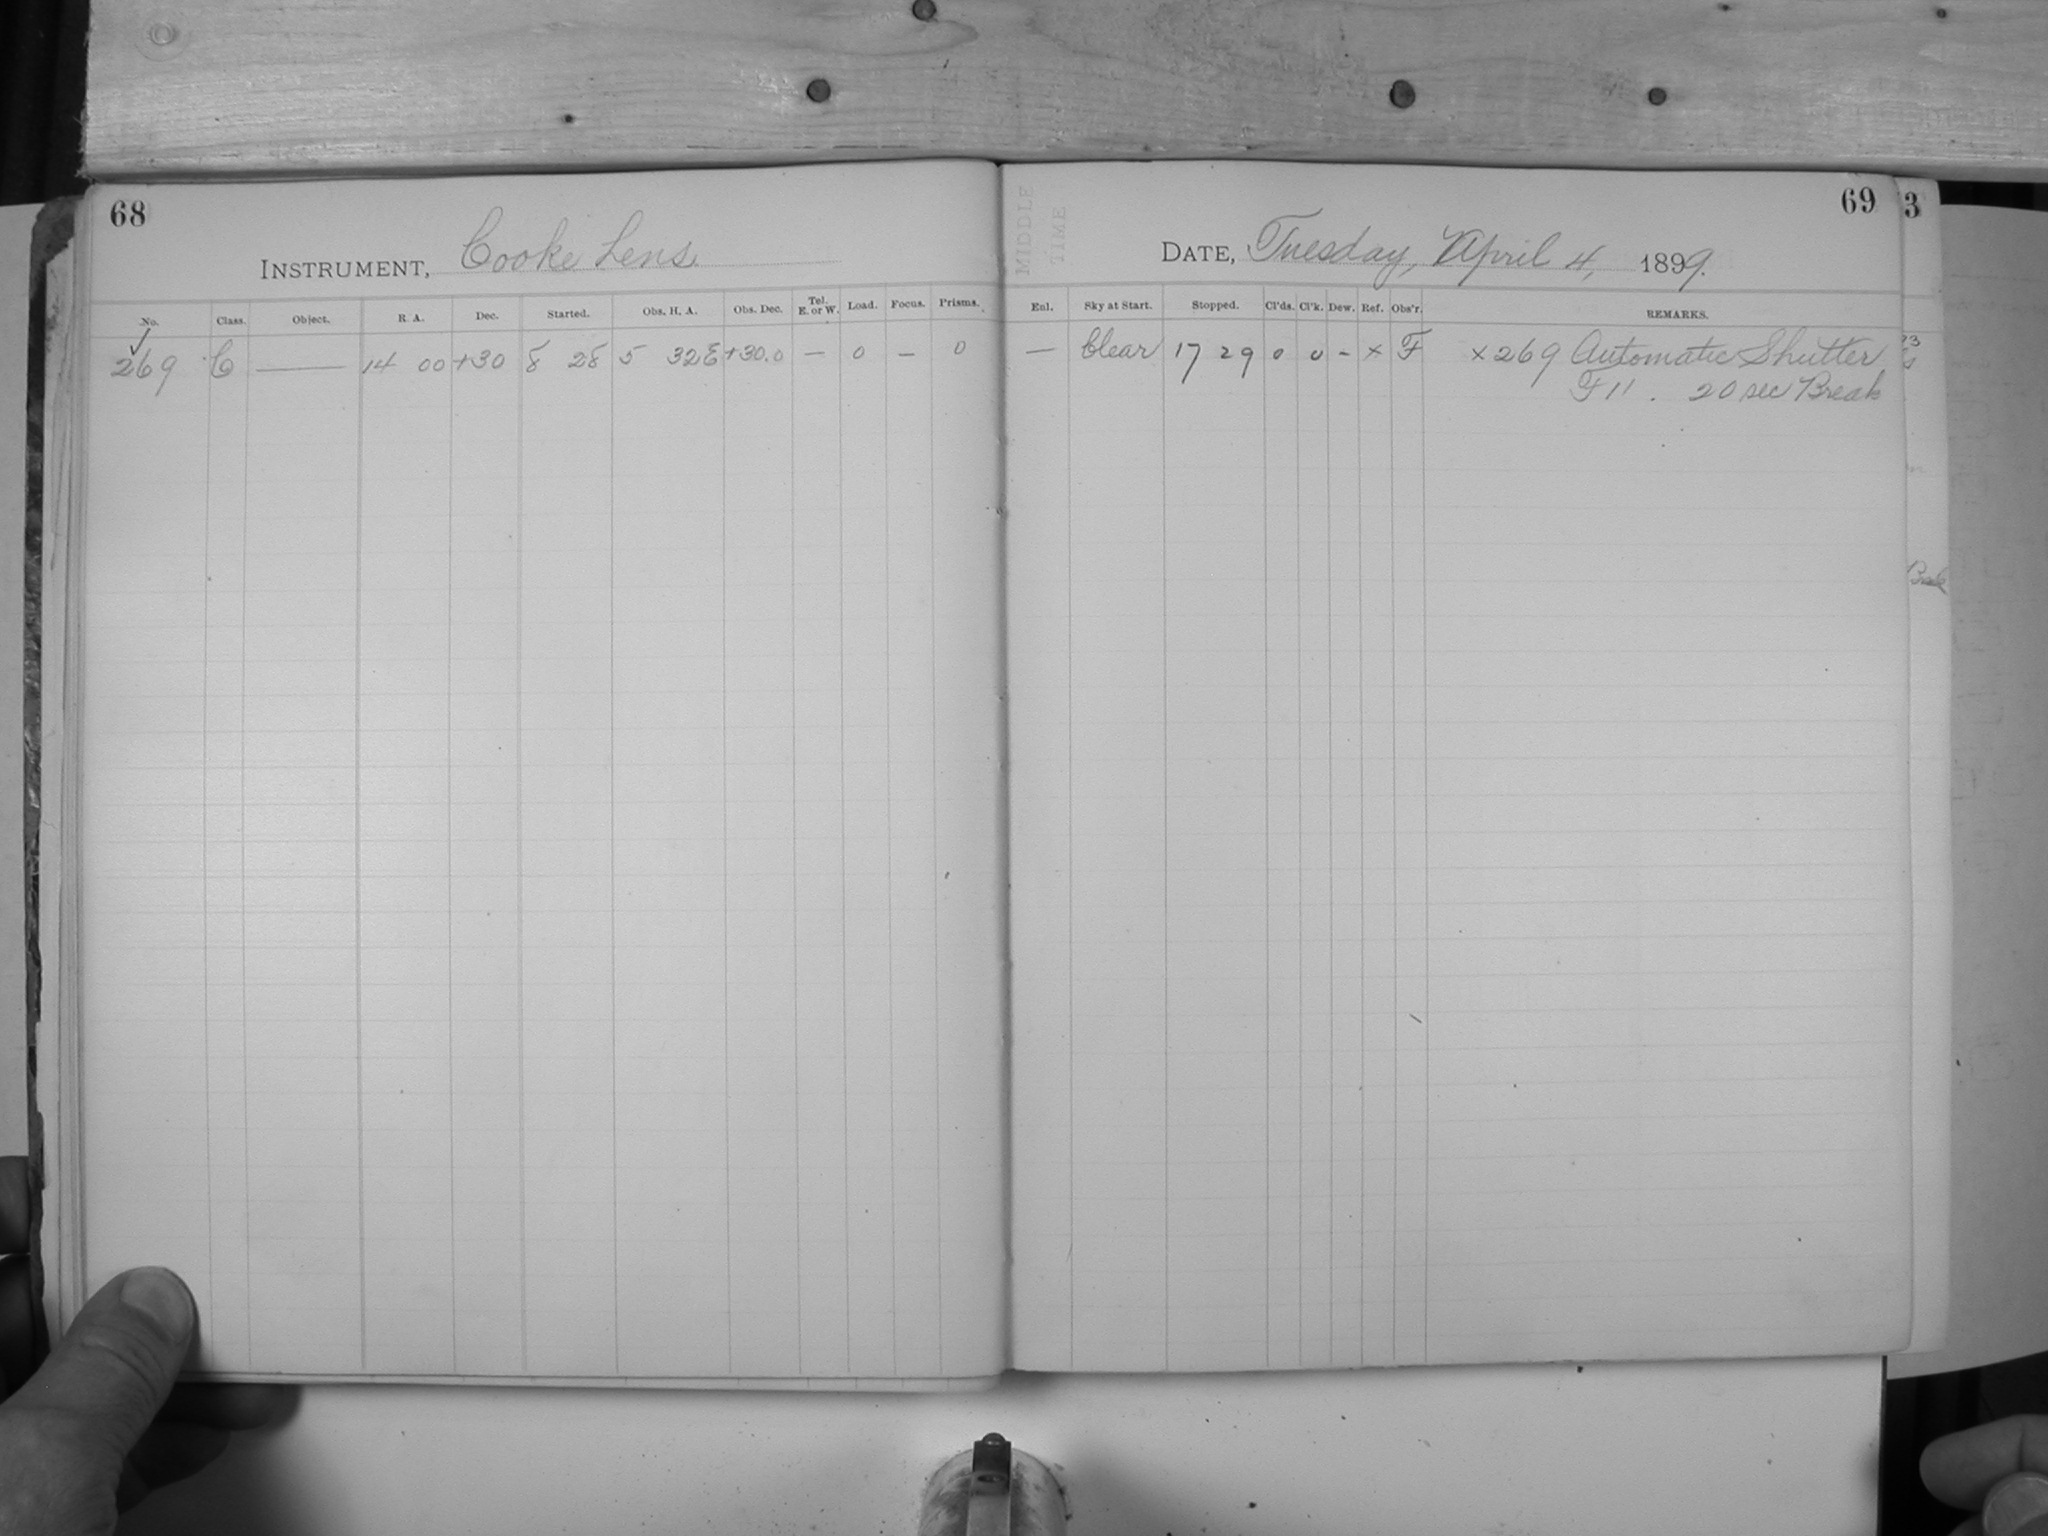 68
INSTRUMENT, Cooke Lens.
No. Class. Object. R. A. Dec. Started. Obs. H. A. Obs. Dec. Tel. E. or W. Load. Focus. Prisms.
✓
269 C — 14 00 +30 8 28 5 32 E +30.0 — 0 — 0
69
MIDDLE
TIME
DATE, Tuesday, April 4, 1899.
Enl. Sky at Start. Stopped. Cl'ds. Cl'k. Dew. Ref. Obs'r. REMARKS.
— Clear 17 29 0 0 - x F x 269 Automatic Shutter
F 11. 20 sec Break
3